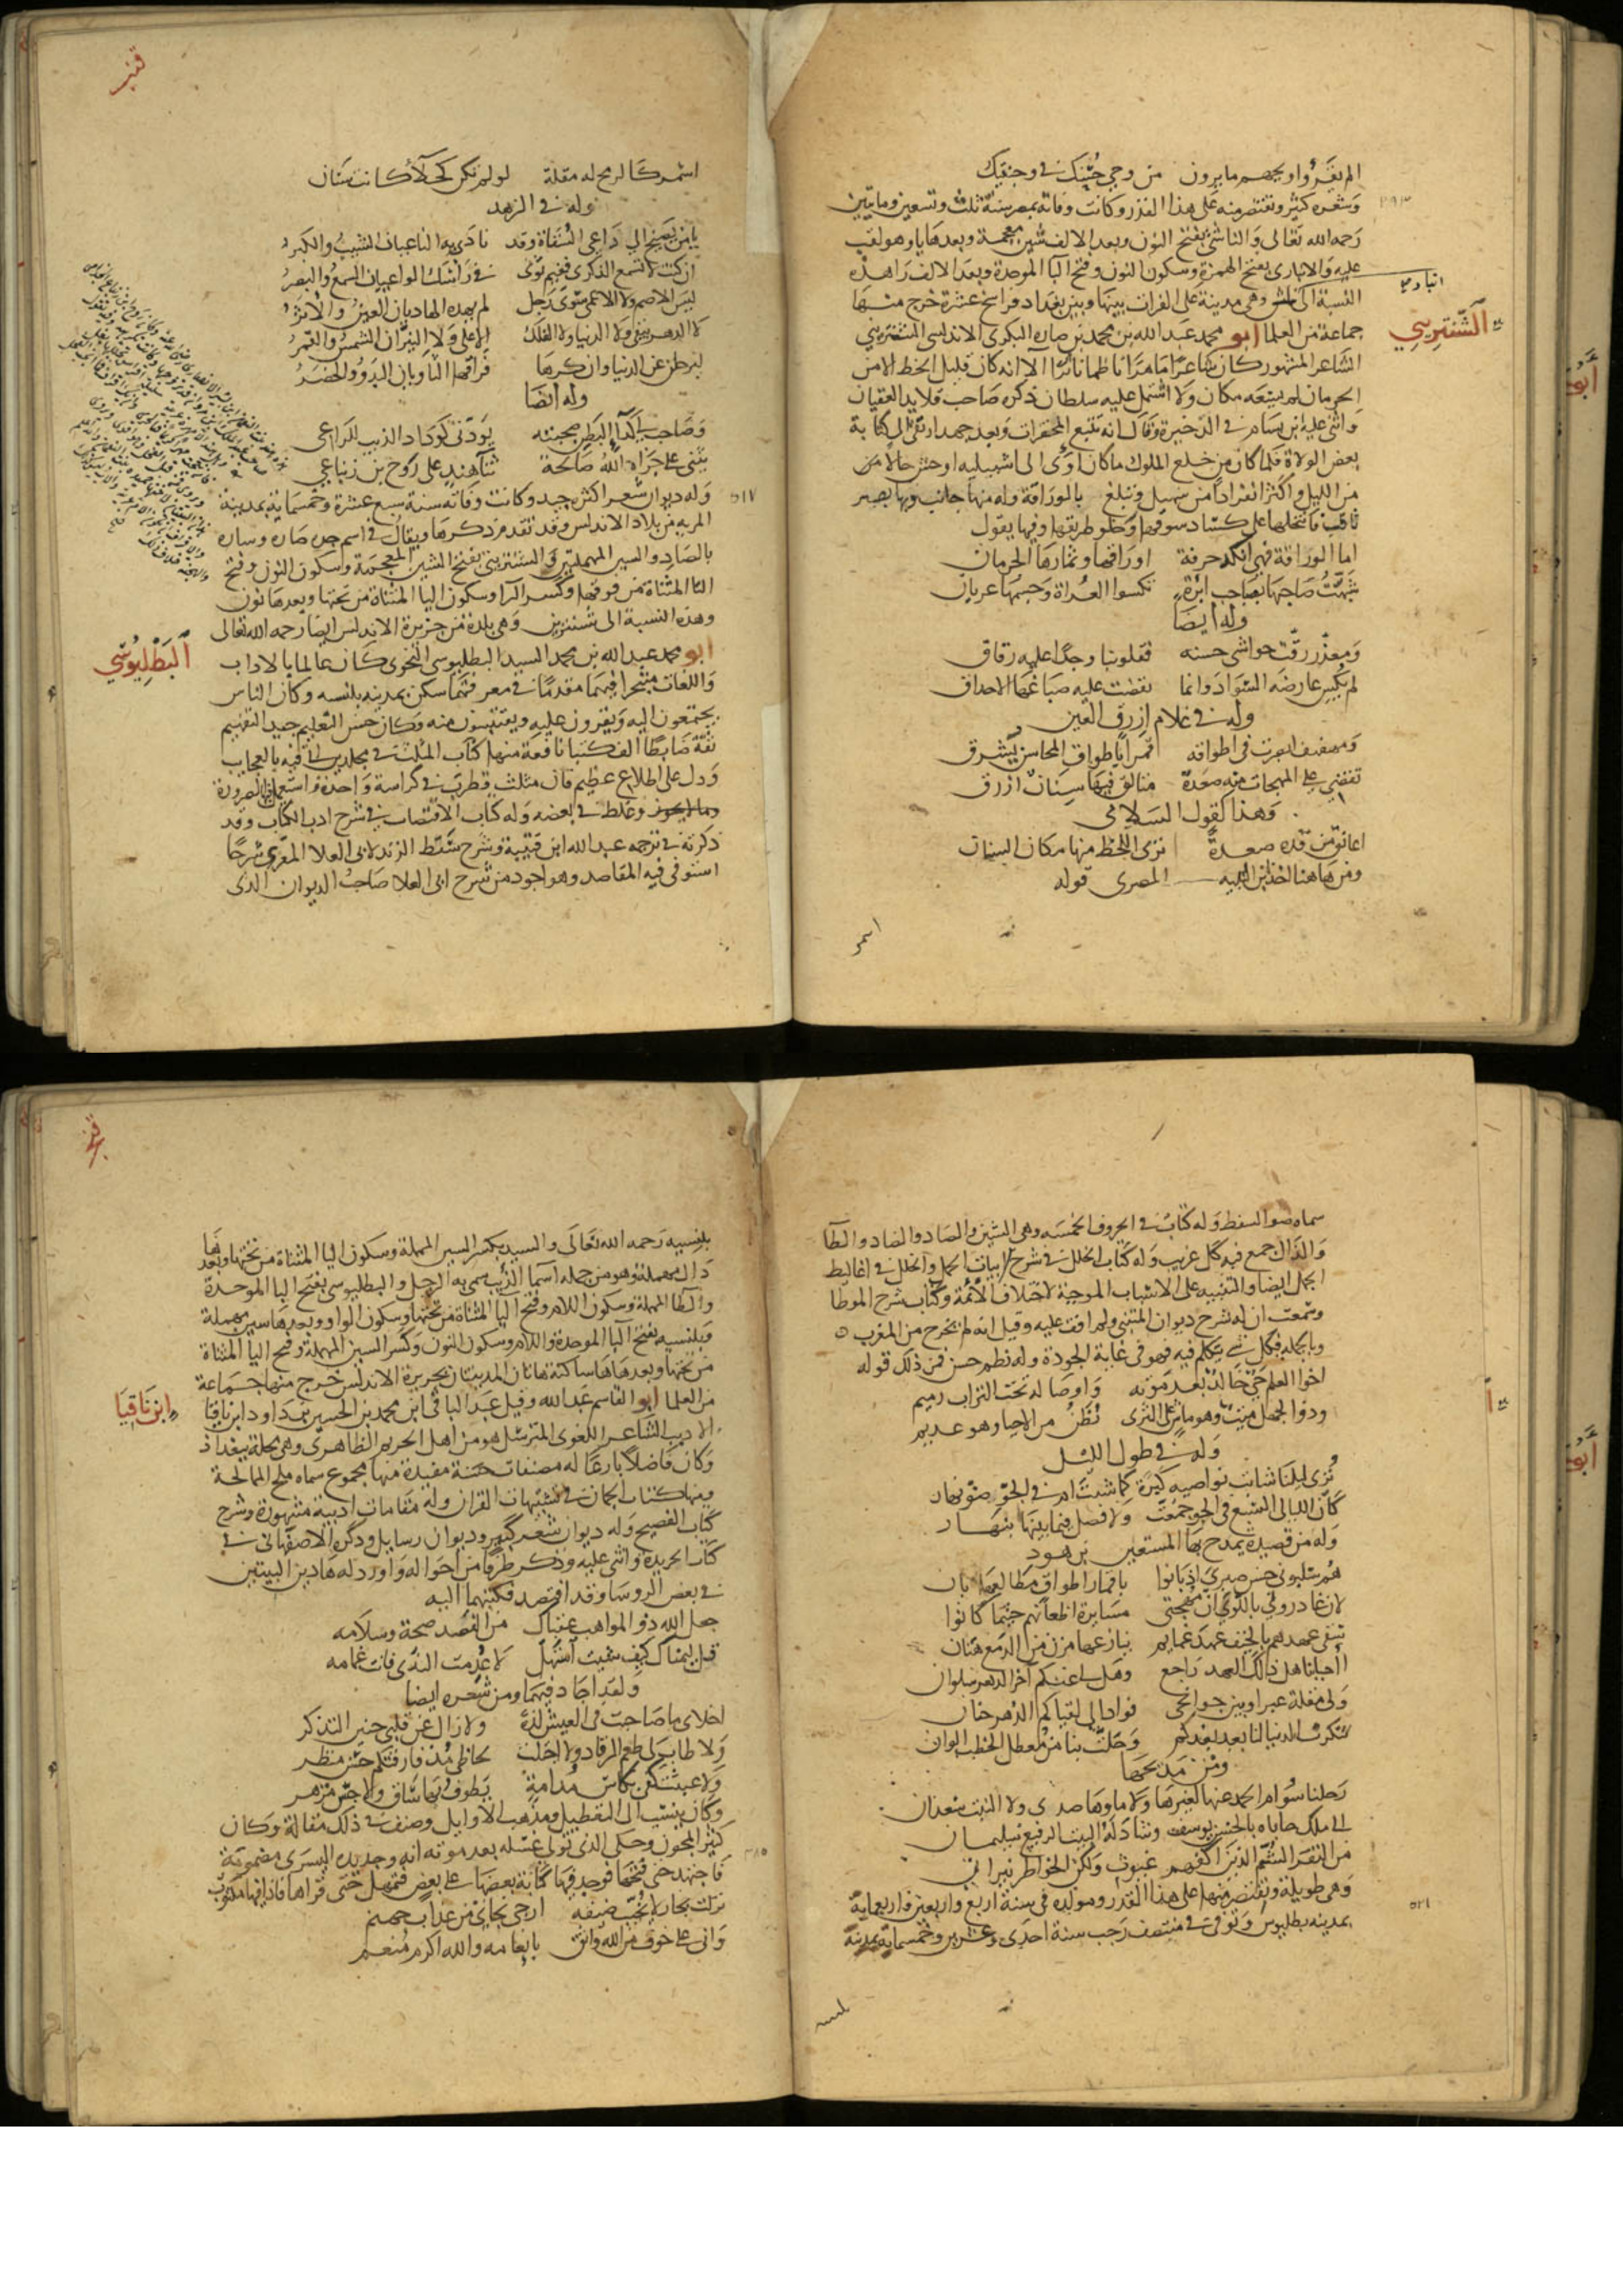 الم يفدوا وبحهم ما يرون من وحي حسنك في وجنتيك
وشعره كثير ونقتصر منه على هذا القدر وكانت وفاته بمصر سنة ثلث وتسعين ومايتين
٢٩٣
رحمه الله تعالى والناشئ بفتح النون وبعد الالف شين معجمة وبعدها يا وهو لقب
عليه والانباري بفتح الهمزة وسكون النون وفتح البا الموحدة وبعد الالف را هذه
انبار
النسبة الى وهي مدينة على الفرات بينها وبين بغداد فراسخ عشرة خرج منها
الشنتريني
جماعة من العلما ابو محمد عبد الله بن محمد بن صاره البكري الاندلسي الشنتريني
الشاعر المشهور كان شاعرا ماهرا ناظما ناثرا الا انه كان قليل الحظ الا من
الحرمان لم يسعه مكان ولا اشتمل عليه سلطان ذكره صاحب قلايد العقيان
واثنى عليه بن بسام في الذخيرة وقال انه تتبع المحقرات وبعد جهد ارتقى الى كتابة
بعض الولاة فلما كان من خلع الملوك ما كان اوى الى اشبيلية اوحش حالا من
من الليل واكثر انفرادا من سهيل وتبلغ بالوراقة وله منها جانب وبها بصر
ثاقب فانتحلها على كساد سوقها وخلو طريقها وفيها يقول
اما الوراقة فهي انكد حرفة اوراقها وثمارها الحرمان
شبهت صاحبها بصاحب ابرة تكسوا العراة وجسمها عريان
وله ايضا
ومعذر رقت حواشي حسنه فقلوبنا وجدا عليه رقاق
لم يكس عارضه السواد وانما نفضت عليه صباغها الاحداق
وله في غلام ازرق العين
ومهفهف ابصرت في اطواقه قمرا باطواق المحاسن يشرق
تقضي على المهجات منه صعدة متالق فيها سنان ازرق
وهذا كقول السلامي
اعانق من قده صعدة ترى اللحظ منها مكان السنان
ومن هاهنا اخذ ابن النبيه المصري قوله
اسمر
قنبر
اسمر كالرمح له مقلة لو لم تكن كحلا كانت سنان
وله في الزهد
يا من يصيخ الى داعي السقاة وقد نادى به الناعيان الشيب والكبر
ان كنت لا تسمع الذكرى ففيم ثوى في راسك الواعيان السمع والبصر
ليس الاصم ولا الاعمى سوى رجل لم يهده الهاديان العين والاثر
لا الدهر يبقى ولا الدنيا ولا الفلك الاعلى ولا النيران الشمس والقمر
ليرحلن عن الدنيا وان كرها فراقها الثاويان البدو والحضر
وله ايضا
وصاحب لي كداء البطن صحبته يودني كوداد الذيب للراعي
يثني علي جزاه الله صالحة ثناء هند على روح بن زنباع
وله ديوان شعر اكثره جيد وكانت وفاته سنة سبع عشرة وخمسماية بمدينة
٥١٧
المرية من بلاد الاندلس وقد تقدم ذكرها ويقال في اسم جده صاره وساره
بالصاد والسين المهملتين والشنتريني بفتح الشين المعجمة وسكون النون وفتح
التا المثناة من فوقها وكسر الرا وسكون اليا المثناة من تحتها وبعدها نون
وهذه النسبة الى شنترين وهي بلدة من جزيرة الاندلس ايضا رحمه الله تعالى
البطليوسي
ابو محمد عبد الله بن محمد السيد البطليوسي النحوي كان عالما بالاداب
واللغات متبحرا فيهما مقدما في معرفتهما سكن بمدينه بلنسيه وكان الناس
يجتمعون اليه ويقرون عليه ويقتبسون منه وكان حسن التعليم جيد التفهيم
ثقة ضابطا الف كتبا نافعة منها كتاب المثلث في مجلدين اتى فيه بالعجايب
ودل على اطلاع عظيم فان مثلث قطرب في كراسة واحدة واستعمل فيها الضرورة
وما لا يجوز وغلط في بعضه وله كتاب الاقتضاب في شرح ادب الكتاب وقد
ذكرته في ترجمه عبد الله ابن قتيبة وشرح سقط الزند لابي العلا المعري شرحا
استوفى فيه المقاصد وهو اجود من شرح ابي العلا صاحب الديوان الذي
سماه ضو السقط وله كتاب في الحروف الخمسه وهي السين والصاد والضاد والطا
والذال جمع فيه كل غريب وله كتاب الحلل في شرح ابيات الجمل والخلل في اغاليط
الجمل ايضا والتنبيه على الاسباب الموجبة لاختلاف الائمة وكتاب شرح الموطا
وسمعت ان له شرح ديوان المتنبي ولم اقف عليه وقيل انه لم يخرج من المغرب
وبالجمله فكل شي يتكلم فيه فهو في غاية الجودة وله نظم حسن فمن ذلك قوله
اخوا العلم حي خالد بعد موته واوصاله تحت التراب رميم
وذو الجهل ميت وهو ماش على الثرى يظن من الاحيا وهو عديم
وله في طول الليل
ترى ليلنا شابت نواصيه كبرة كما شبت ام في الجو ضو نهار
كان الليالي السبع في الجو جمعت ولا فصل فيما بينها بنهار
وله من قصيدة يمدح بها المستعين بن هود
هم سلبوني حسن صبري اذ بانوا باقمار اطواق مطالعها بان
لان غادروني باللوى ان مهجتي مسايرة اظعانهم حيثما كانوا
سقى عهدهم بالخيف عهد غمايم ينازعها مزن من الدمع هتان
ااحبابنا هل ذلك العهد راجع وهل لي عنكم اخر الدهر سلوان
ولي مقلة عبرا وبين جوانحي فوادا الى لقياكم الدهر حنان
تنكرت الدنيا لنا بعد بعدكم وحلت بنا من معطل الخطب الوان
ومن مديحها
رحلنا سوام الحمد عنها لغيرها ولا ماوها صدى ولا النبت سعدان
الى ملك حاباه بالحسن يوسف وشاد له البيت الرفيع سليمان
من النفر الشم الذين اكفهم غيوث ولكن الخواطر نيران
وهي طويلة ونقتصر منها على هذا القدر ومولده في سنة اربع واربعين واربعماية
بمدينه بطليوس وتوفي في منتصف رجب سنة احدى وعشرين وخمسماية بمدينة
٥٢١
بلنسيه
بلنسيه رحمه الله تعالى والسيد بكسر السين المهملة وسكون اليا المثناة من تحتها وبعدها
دال مهملة وهو من جمله اسما الذيب سمي به الرجل والبطليوسي بفتح البا الموحدة
والطا المهملة وسكون اللام وفتح اليا المثناة من تحتها وسكون الواو وبعدها سين مهملة
وبلنسيه بفتح البا الموحدة واللام وسكون النون وكسر السين المهملة وفتح اليا المثناة
من تحتها وبعدها ها ساكنة هاتان المدينتان بجزيرة الاندلس خرج منها جماعة
ابن ناقيا
من العلما ابو القاسم عبد الله وقيل عبد الباقي ابن محمد بن الحسين بن داود ابن ناقيا
الاديب الشاعر اللغوي المترسل هو من اهل الحريم الظاهري وهي محلة ببغداذ
وكان فاضلا بارعا له مصنفات حسنة مفيدة منها مجموع سماه ملح الممالحة
ومنها كتاب الجمان في تشبيهات القران وله مقامات ادبية مشهورة وشرح
كتاب الفصيح وله ديوان شعر كبير وديوان رسايل وذكره الاصفهاني في
كتاب الخريدة واثنى عليه وذكر طرفا من احواله واورد له هاذين البيتين
في بعض الروسا وقد افتصد فكتبهما اليه
جعل الله ذو المواهب عقباك من الفصد صحة وسلامه
قل ليمناك كيف شيت استهلي لا عدمت الندى فانت غمامه
ولقد اجاد فيهما ومن شعره ايضا
اخلاي ما صاحبت في العيش لذة ولا زال عن قلبي حنين التذكر
ولا طاب لي طعم الرقاد ولا اجتلت لحاظي مذ فارقتكم حسن منظر
ولا عبثت كفي بكاس مدامة يطوف بها ساق ولا جس مزهر
وكان ينسب الى التعطيل ومذهب الاوايل وصنف في ذلك مقالة وكان
كثير المجون وحكى الذي تولى غسله بعد موته انه وجد يده اليسرى مضمومة
٤٨٥
فاجتهد حتى فتحها فوجد فيها كتابة بعضها على بعض فتمهل حتى قراها فاذا فيها مكتوب
نزلت بجار لا يخيب ضيفه ارجي نجاتي من عذاب جهنم
واني على خوف من الله واثق بانعامه والله اكرم منعم